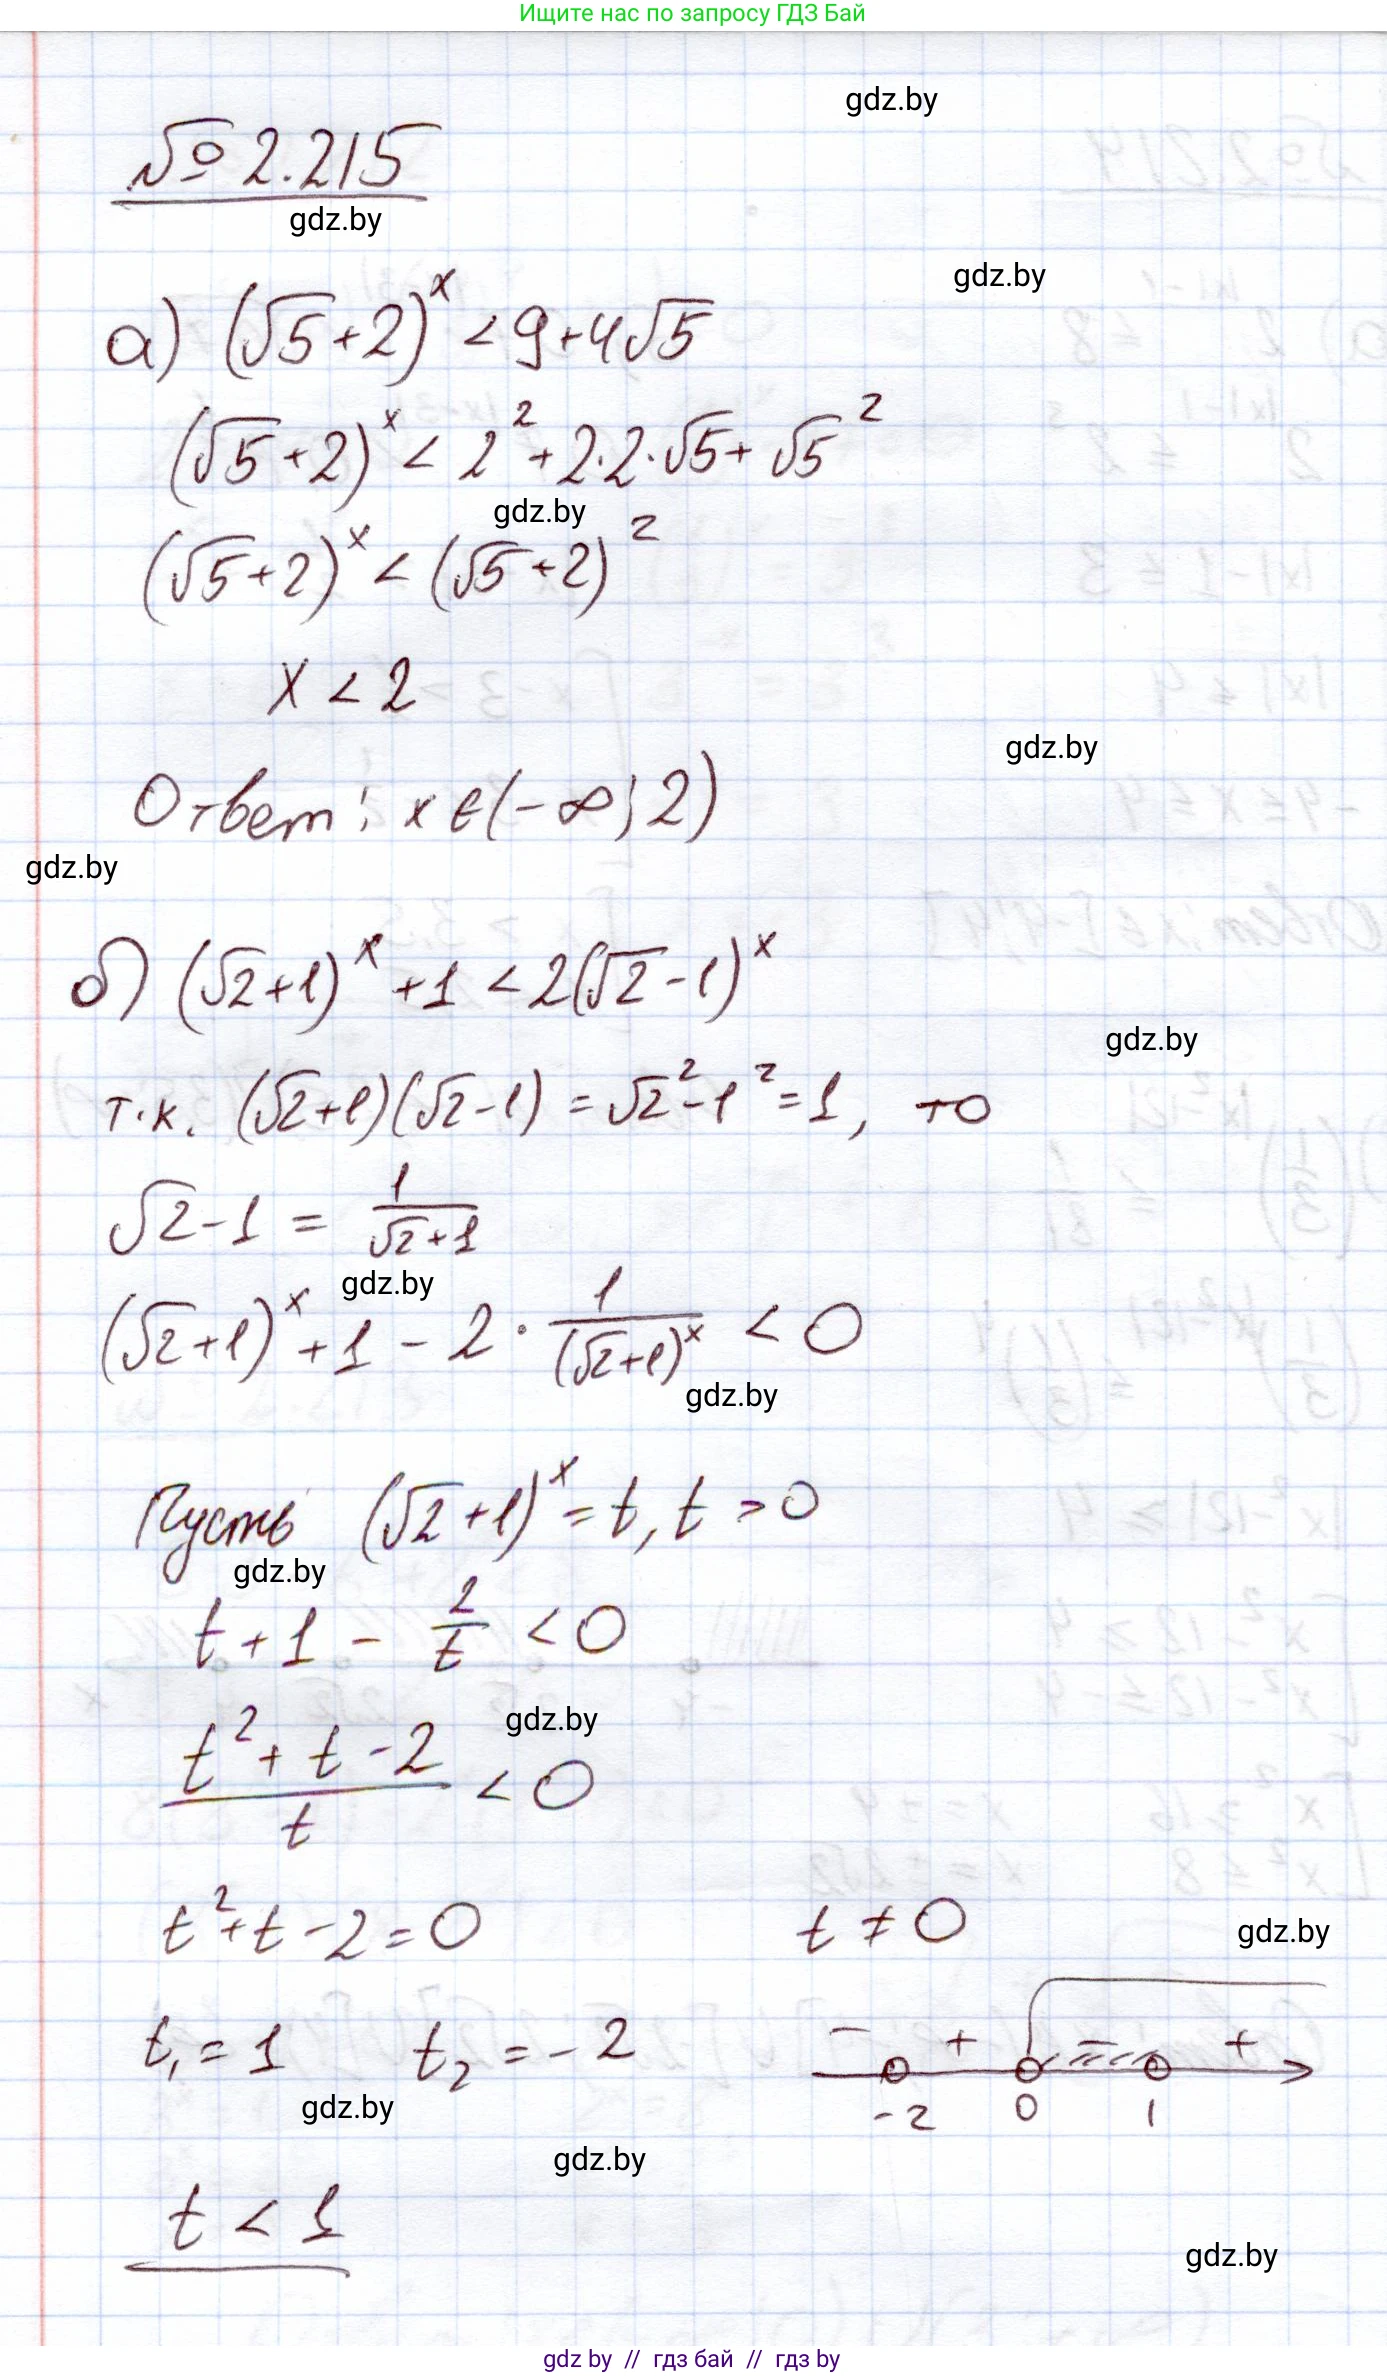 Ищите нас по запросу ГДЗ Бай
gdz.by
№ 2.215
gdz.by
gdz.by
а) (√5+2)^x < 9+4√5
(√5+2)^x < 2^2 + 2·2·√5 + √5^2
gdz.by
(√5+2)^x < (√5+2)^2
x < 2
gdz.by
Ответ: x∈(-∞; 2)
gdz.by
б) (√2+1)^x + 1 < 2(√2-1)^x
gdz.by
т.к. (√2+1)(√2-1) = √2^2 - 1^2 = 1, то
√2-1 = 1/(√2+1)
gdz.by
(√2+1)^x + 1 - 2 · 1/(√2+1)^x < 0
gdz.by
Пусть (√2+1)^x = t, t > 0
gdz.by
t + 1 - 2/t < 0
gdz.by
(t^2 + t - 2)/t < 0
t^2 + t - 2 = 0 t ≠ 0
gdz.by
t₁ = 1 t₂ = -2
- + - +
-2 0 1
gdz.by
gdz.by
t < 1
gdz.by
gdz.by // гдз бай // гдз by